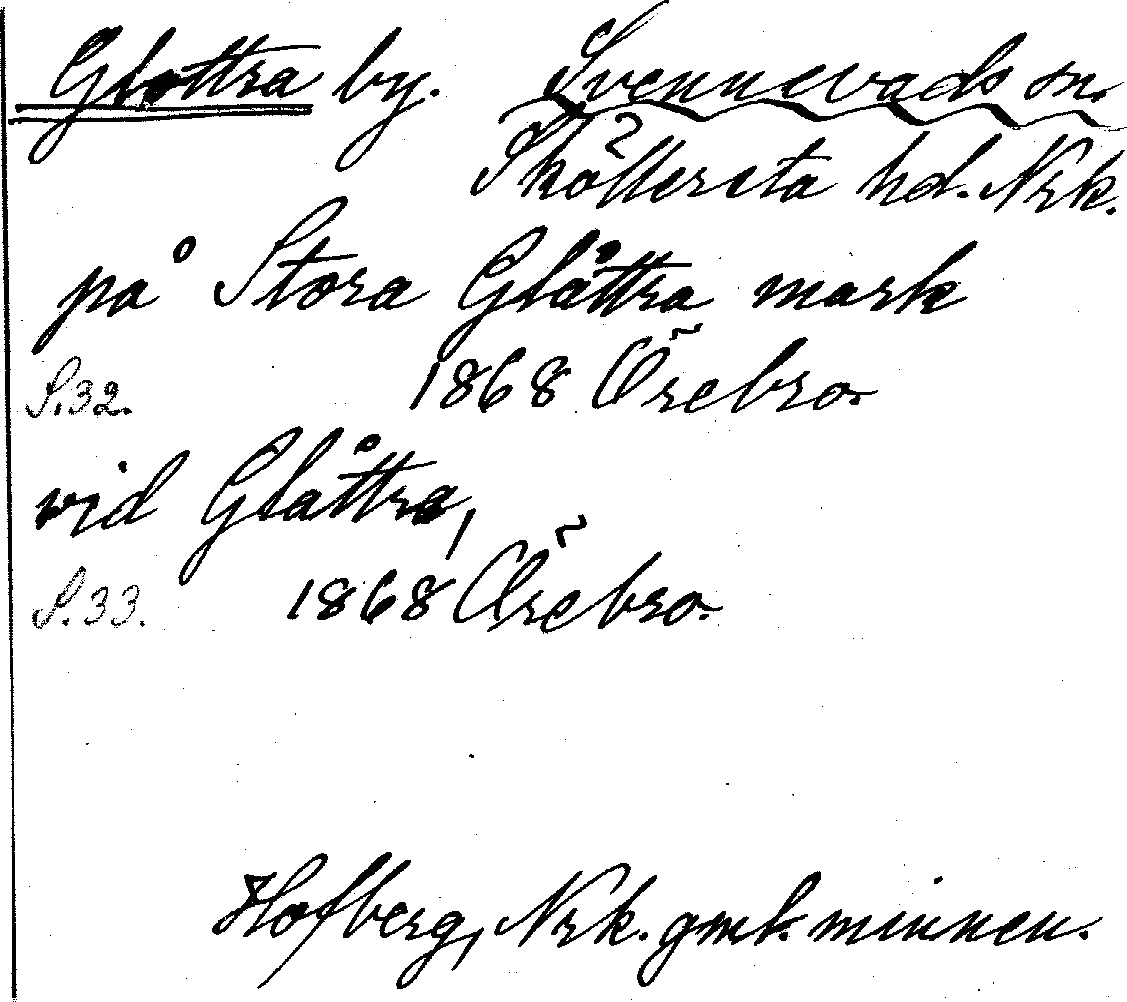 Glottra by. Svennevads sn.
Sköllersta hd. Nrk.
på Stora Glåttra mark
S.32. 1868 Örebro.
vid Glåttra,
S.33. 1868 Örebro.
Hofberg, Nrk. gml. minnen.